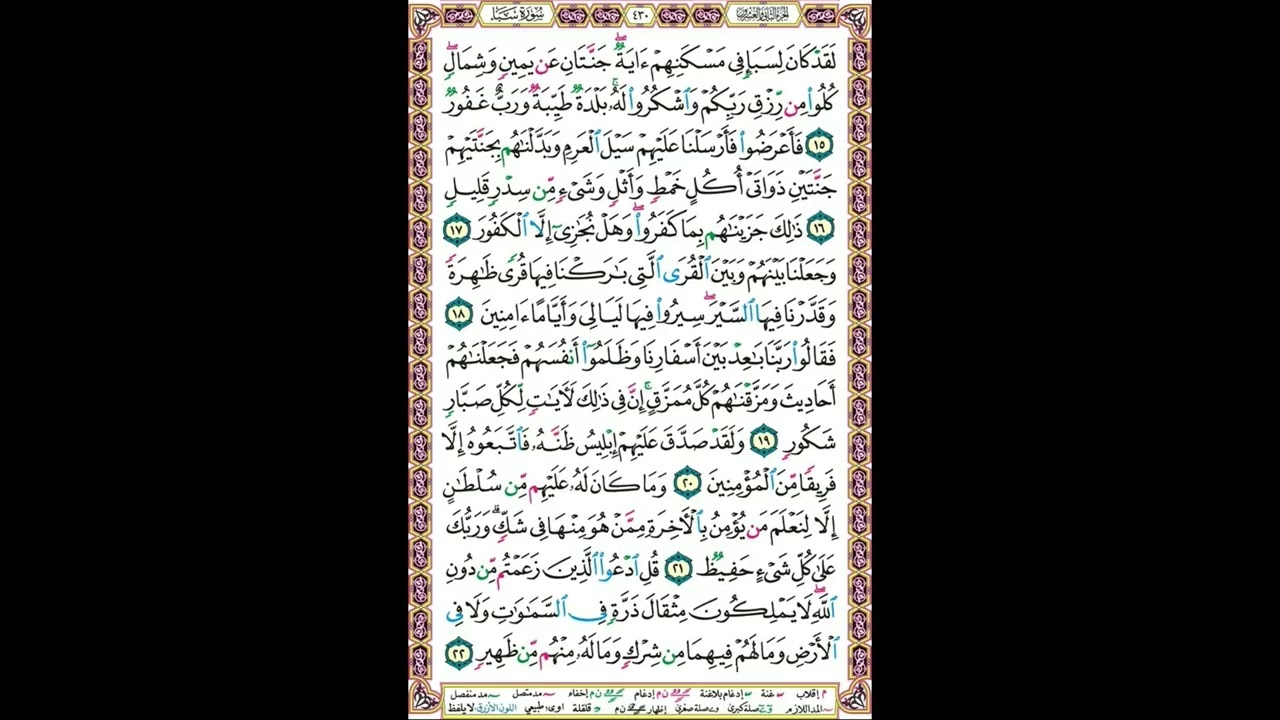 سُورَةُ سَبَإٍ ٤٣٠ الجزء الثاني والعشرون
لَقَدْ كَانَ لِسَبَإٍ فِي مَسْكَنِهِمْ ءَايَةٌ ۖ جَنَّتَانِ عَن يَمِينٍ وَشِمَالٍ ۖ
كُلُوا۟ مِن رِّزْقِ رَبِّكُمْ وَٱشْكُرُوا۟ لَهُۥ ۚ بَلْدَةٌ طَيِّبَةٌ وَرَبٌّ غَفُورٌ
١٥ فَأَعْرَضُوا۟ فَأَرْسَلْنَا عَلَيْهِمْ سَيْلَ ٱلْعَرِمِ وَبَدَّلْنَـٰهُم بِجَنَّتَيْهِمْ
جَنَّتَيْنِ ذَوَاتَىْ أُكُلٍ خَمْطٍ وَأَثْلٍ وَشَىْءٍ مِّن سِدْرٍ قَلِيلٍ
١٦ ذَٰلِكَ جَزَيْنَـٰهُم بِمَا كَفَرُوا۟ ۖ وَهَلْ نُجَـٰزِىٓ إِلَّا ٱلْكَفُورَ ١٧
وَجَعَلْنَا بَيْنَهُمْ وَبَيْنَ ٱلْقُرَى ٱلَّتِى بَـٰرَكْنَا فِيهَا قُرًى ظَـٰهِرَةً
وَقَدَّرْنَا فِيهَا ٱلسَّيْرَ ۖ سِيرُوا۟ فِيهَا لَيَالِىَ وَأَيَّامًا ءَامِنِينَ ١٨
فَقَالُوا۟ رَبَّنَا بَـٰعِدْ بَيْنَ أَسْفَارِنَا وَظَلَمُوٓا۟ أَنفُسَهُمْ فَجَعَلْنَـٰهُمْ
أَحَادِيثَ وَمَزَّقْنَـٰهُمْ كُلَّ مُمَزَّقٍ ۚ إِنَّ فِى ذَٰلِكَ لَـَٔايَـٰتٍ لِّكُلِّ صَبَّارٍ
شَكُورٍ ١٩ وَلَقَدْ صَدَّقَ عَلَيْهِمْ إِبْلِيسُ ظَنَّهُۥ فَٱتَّبَعُوهُ إِلَّا
فَرِيقًا مِّنَ ٱلْمُؤْمِنِينَ ٢٠ وَمَا كَانَ لَهُۥ عَلَيْهِم مِّن سُلْطَـٰنٍ
إِلَّا لِنَعْلَمَ مَن يُؤْمِنُ بِٱلْـَٔاخِرَةِ مِمَّنْ هُوَ مِنْهَا فِى شَكٍّ ۗ وَرَبُّكَ
عَلَىٰ كُلِّ شَىْءٍ حَفِيظٌ ٢١ قُلِ ٱدْعُوا۟ ٱلَّذِينَ زَعَمْتُم مِّن دُونِ
ٱللَّهِ ۖ لَا يَمْلِكُونَ مِثْقَالَ ذَرَّةٍ فِى ٱلسَّمَـٰوَٰتِ وَلَا فِى
ٱلْأَرْضِ وَمَا لَهُمْ فِيهِمَا مِن شِرْكٍ وَمَا لَهُۥ مِنْهُم مِّن ظَهِيرٍ ٢٢
م إقلاب غنة إدغام بلاغنة ن م إدغام ن م إخفاء مد متصل مد منفصل
المد اللازم صلة كبرى صلة صغرى إظهار ن م قلقلة اوى: طبيعي اللون الأزرق: لا يلفظ